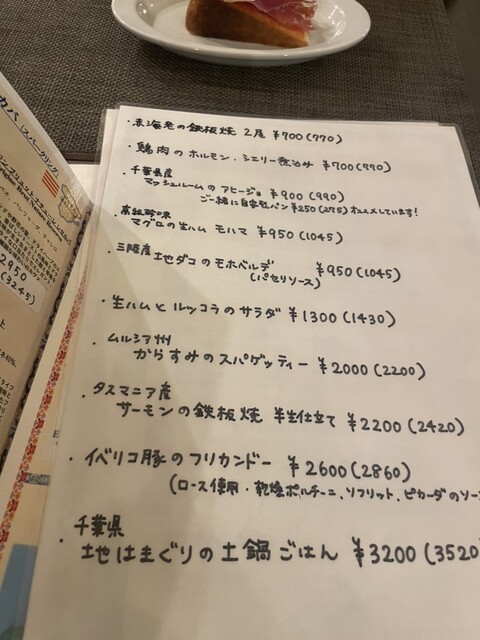 ・赤海老の鉄板焼 2尾 ¥700(770)
・鶏肉のホルモン・シェリー煮込み ¥700(770)
・千葉県産
マッシュルームのアヒージョ ¥900(990)
ご一緒に自家製パン¥250(275)オススメしています!
・高級珍味
マグロの生ハム モハマ ¥950(1045)
・三陸産
地ダコのモホベルデ ¥950(1045)
(パセリソース)
・生ハムとルッコラのサラダ ¥1300(1430)
・ムルシア州
からすみのスパゲッティー ¥2000(2200)
・タスマニア産
サーモンの鉄板焼 半生仕立て ¥2200(2420)
・イベリコ豚のフリカンドー ¥2600(2860)
(ロース使用・乾燥ポルチーニ、ソフリット、ピカーダのソー
・千葉県
地はまぐりの土鍋ごはん ¥3200(3520
カバ (スパークリング)
2950
(3245)